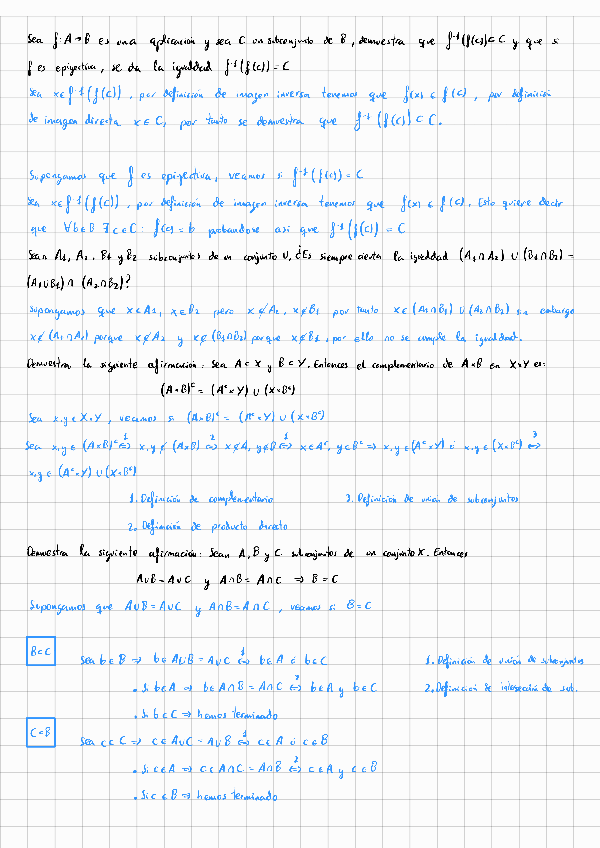 Sea f: A → B es una aplicación y sea C un subconjunto de B, demuestra que f⁻¹(f(C)) ⊂ C y que si
f es epiyectiva, se da la igualdad f⁻¹(f(C)) = C
Sea x ∈ f⁻¹(f(C)), por definición de imagen inversa tenemos que f(x) ∈ f(C), por definición
de imagen directa x ∈ C, por tanto se demuestra que f⁻¹(f(C)) ⊂ C.
Supongamos que f es epiyectiva, veamos si f⁻¹(f(C)) = C
Sea x ∈ f⁻¹(f(C)), por definición de imagen inversa tenemos que f(x) ∈ f(C). Esto quiere decir
que ∀b∈B ∃c∈C: f(c) = b probandose asi que f⁻¹(f(C)) = C
Sean A₁, A₂, B₁ y B₂ subconjuntos de un conjunto U, ¿Es siempre cierta la igualdad (A₁∩A₂) ∪ (B₁∩B₂) =
(A₁∪B₁) ∩ (A₂∩B₂)?
Supongamos que x∈A₁, x∈B₂ pero x∉A₂, x∉B₁ por tanto x∈(A₁∩B₁) ∪ (A₂∩B₂) sin embargo
x∉(A₁∩A₂) porque x∉A₂ y x∉(B₁∩B₂) porque x∉B₁, por ello no se cumple la igualdad.
Demuestra la siguiente afirmación: Sea A⊂X y B⊂Y. Entonces el complementario de A×B en X×Y es:
(A×B)ᶜ = (Aᶜ×Y) ∪ (X×Bᶜ)
Sea x,y ∈ X×Y, veamos si (A×B)ᶜ = (Aᶜ×Y) ∪ (X×Bᶜ)
Sea x,y ∈ (A×B)ᶜ ⇔¹ x,y ∉ (A×B) ⇔² x∉A, y∉B ⇔¹ x∈Aᶜ, y∈Bᶜ ⇒ x,y ∈ (Aᶜ×Y) ó x,y ∈ (X×Bᶜ) ⇔³
x,y ∈ (Aᶜ×Y) ∪ (X×Bᶜ)
1. Definición de complementario 3. Definición de unión de subconjuntos
2. Definición de producto directo
Demuestra la siguiente afirmación: Sean A, B y C subconjuntos de un conjunto X. Entonces
A∪B = A∪C y A∩B = A∩C ⇒ B = C
Supongamos que A∪B = A∪C y A∩B = A∩C, veamos si B = C
B⊂C
Sea b∈B ⇒ b∈A∪B = A∪C ⇔¹ b∈A ó b∈C 1. Definición de unión de subconjuntos
• Si b∈A ⇒ b∈A∩B = A∩C ⇔² b∈A y b∈C 2. Definición de intersección de sub.
• Si b∈C ⇒ hemos terminado
C⊂B
Sea c∈C ⇒ c∈A∪C = A∪B ⇔¹ c∈A ó c∈B
• Si c∈A ⇒ c∈A∩C = A∩B ⇔² c∈A y c∈B
• Si c∈B ⇒ hemos terminado